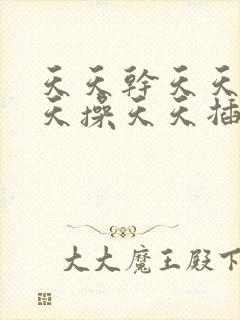 天天幹天天
天操天天插
大大魔王殿下